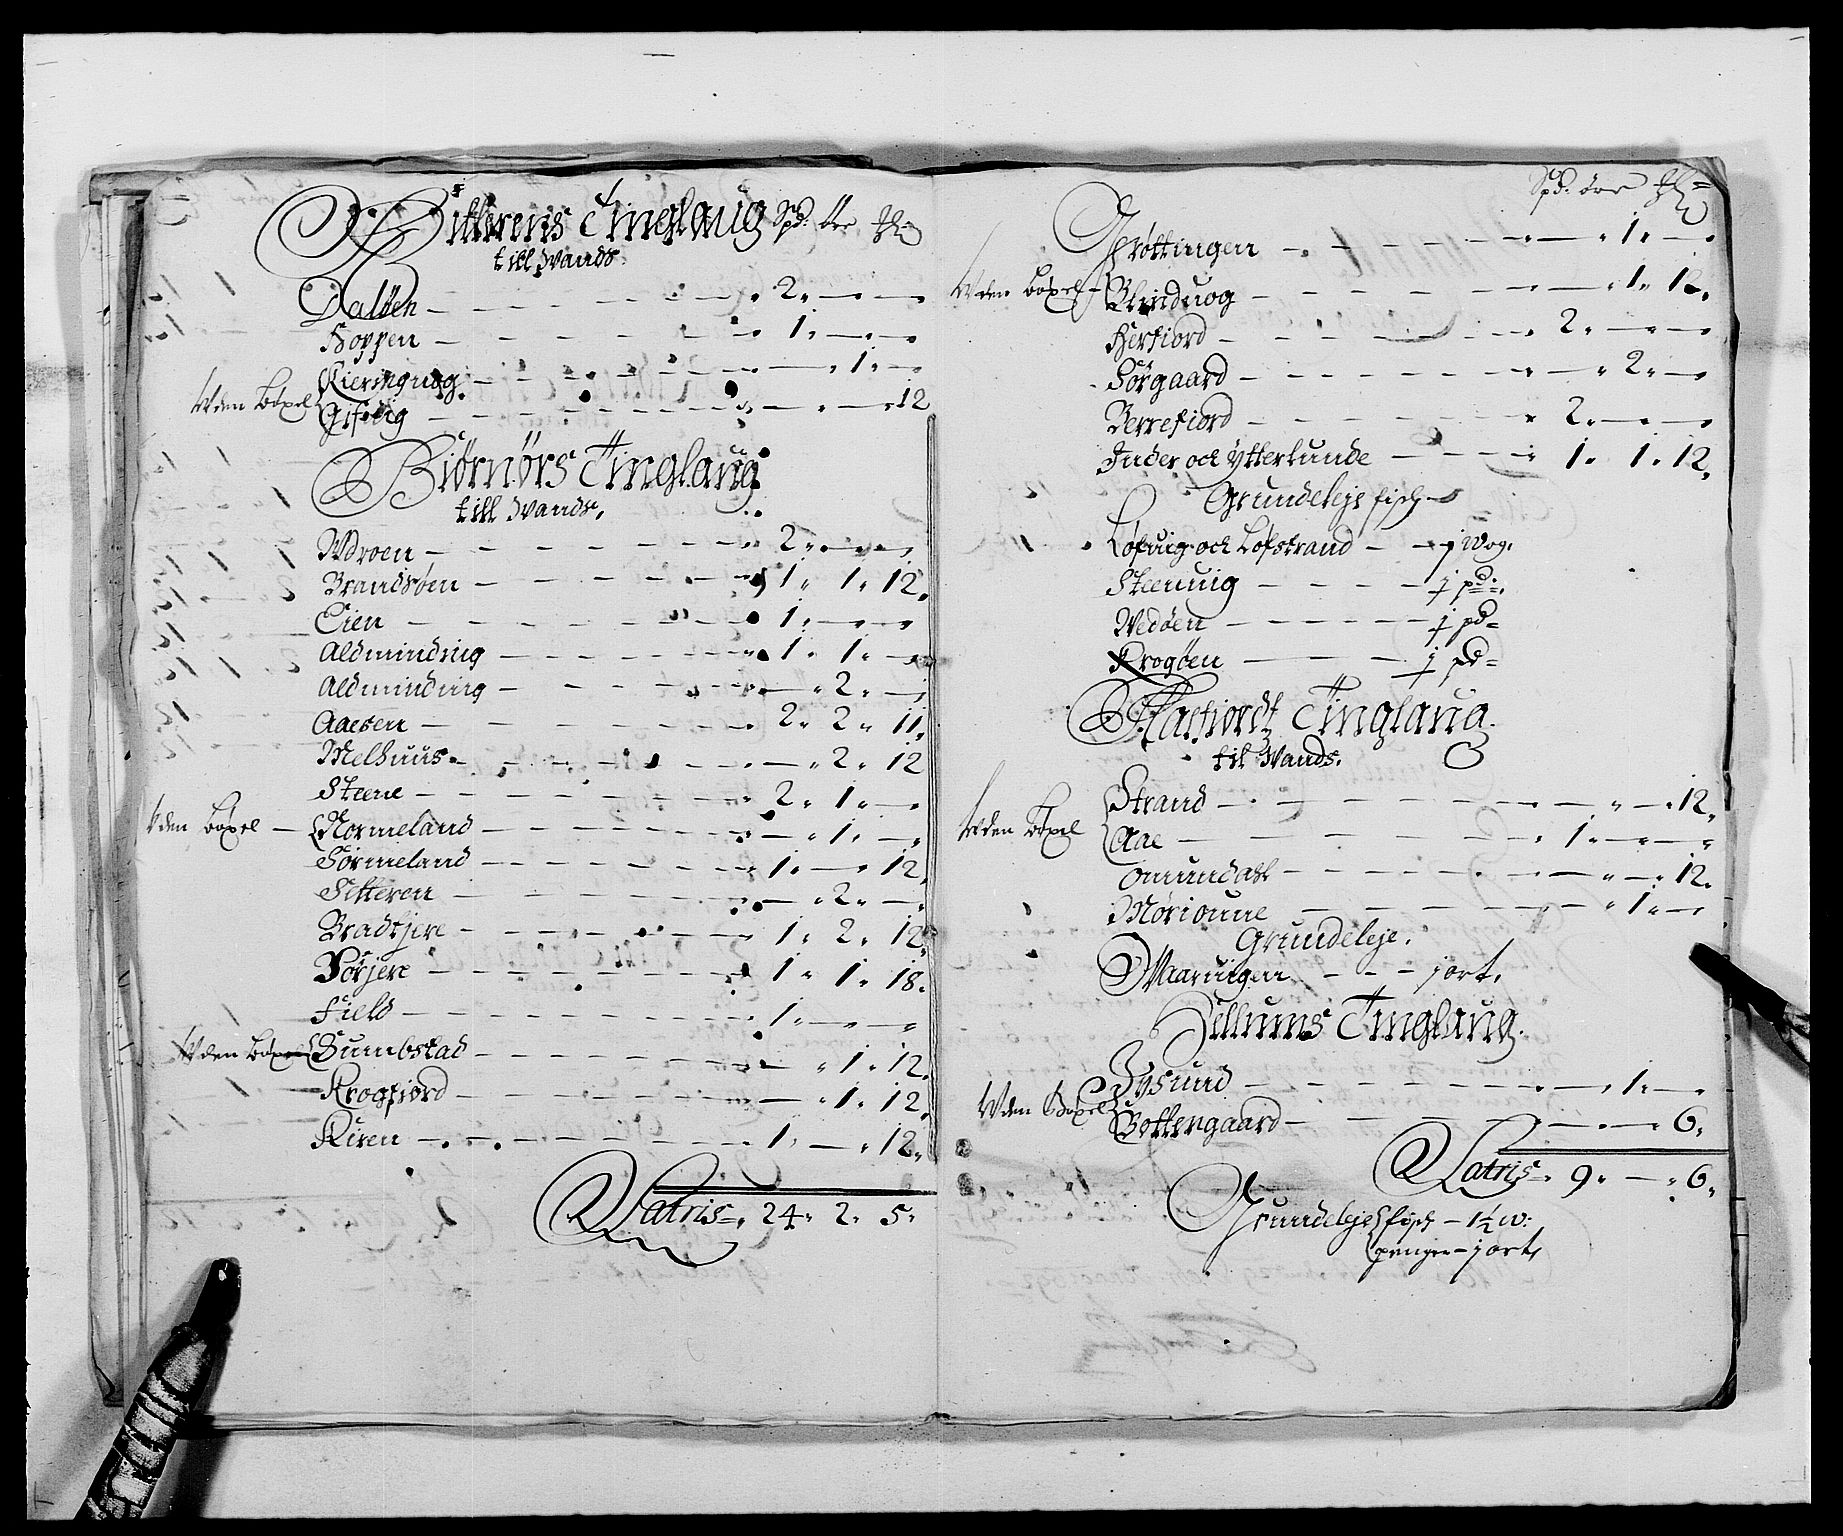 Hitterens Tinglaug Spd. Öre
till Wands.
Daløen — 2 — —
Hoppen — 1 — —
Kiersnguog — — 1 —
Uden Böxel
Gifuig — — — 12
Biørnørs Tinglaug
till Wands.
Udroen — 2 — —
Brandsøm — 1 1 12
Eien — 1 — —
Aldmindnig — 1 1 —
Aldminding — — 2 —
Aaesen — 2 2 11
Melhuus — — 2 12
Steene — 2 1 —
Uden Böxel — Normeland — — 1 —
Sørmeland — 1 — 12
Setteren — — 2 —
Bradtjere — 1 2 12
Sörjere — 1 1 18
Field — 1 — —
Uden Böxel Sumbstad — — 1 12
Krogfiord — — 1 12
Kiren — 1 — 12
Latris 24 2 5
Spd. öre
Grøttingen — — 1 —
Uden Böxel — Blinduog — — 1 12
Herfiord — 2 — —
Sörgaard — — 2 —
Berrefiord — 2 — —
Inder och Ytterkunde — 1 1 12
Grundeleje fisch
Løfuig och Løfstrand — j Wog.
Steenuig — j pd:
Wedøen — j pd
Krogøen — j pd
Harfiordt Tinglaug
til Wands.
Strand — — — 12
Uden Böxel
Aae — 1 — —
Omundahl — — — 12
Mørioune — — 1 —
Grundeleje.
Waaruigen — j ort.
Jellums Tinglaug.
Bysund — — 1 —
Uden Böxel
Bottengaard — — — 6
Latris 9 — 6
Grundeleje fisch — 1½ w:
penger — j ort